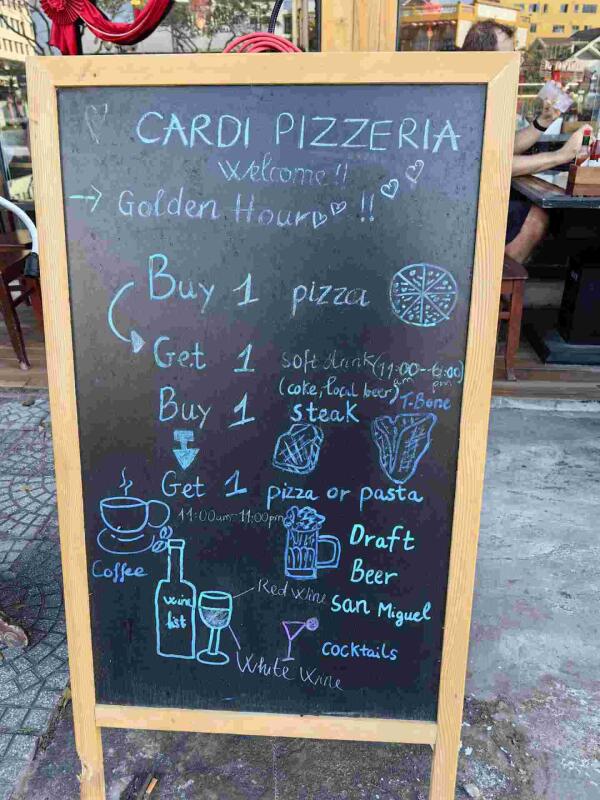 CARDI PIZZERIA
Welcome !!
→ Golden Hour !!
Buy 1 pizza
Get 1 soft drink (11:00am--6:00pm)
(coke, local beer)
Buy 1 steak T.Bone
Get 1 pizza or pasta
11:00am-11:00pm
Coffee
Draft
Beer
San Miguel
Wine
list
Red Wine
White Wine
cocktails